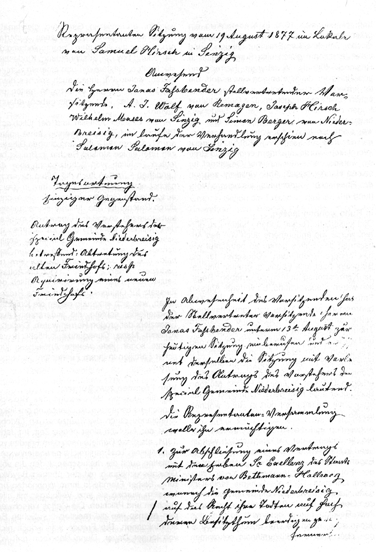 Repräsentanten Sitzung vom 19 August 1877 im Lokale
von Samuel Hirsch in Sinzig
Anwesend
die Herren Jonas Fassbender stellvertretender Vor-
sitzende, A. J. Wolf von Remagen, Joseph Hirsch
Wilhelm Moses von Sinzig und Simon Berger von Nieder-
Breisig, im Laufe der Verhandlung erschien noch
Salomon Salomon von Sinzig
Tagesordnung
einziger Gegenstand.
Antrag des Vorstehers der
special Gemeinde Niederbreisig
betreffend: Abtretung des
alten Friedhofs; resp.
Acquirirung eines neuen
Friedhofs.
In Abwesenheit des Vorsitzenden hat
der Stellvertreter Vorsitzende Herrn
Jonas Fassbender unterm 13t August zur
heutigen Sitzung einberufen und
net derselbe die Sitzung mit Verle-
sung des Antrags des Vorstehers der
special Gemeinde Niederbreisig lautend.
die Repräsentanten-Versammlung
wolle ihn ermächtigen.
1. zur Abschließung eines Vertrags
mit dem hohen Sr Excellenz des Staats
Ministers von Bethmann-Hollweg
wonach die Gemeinde Niederbreisig
auf das Recht ihre Todten auf
deren Besitzthum beerdigen
ferner